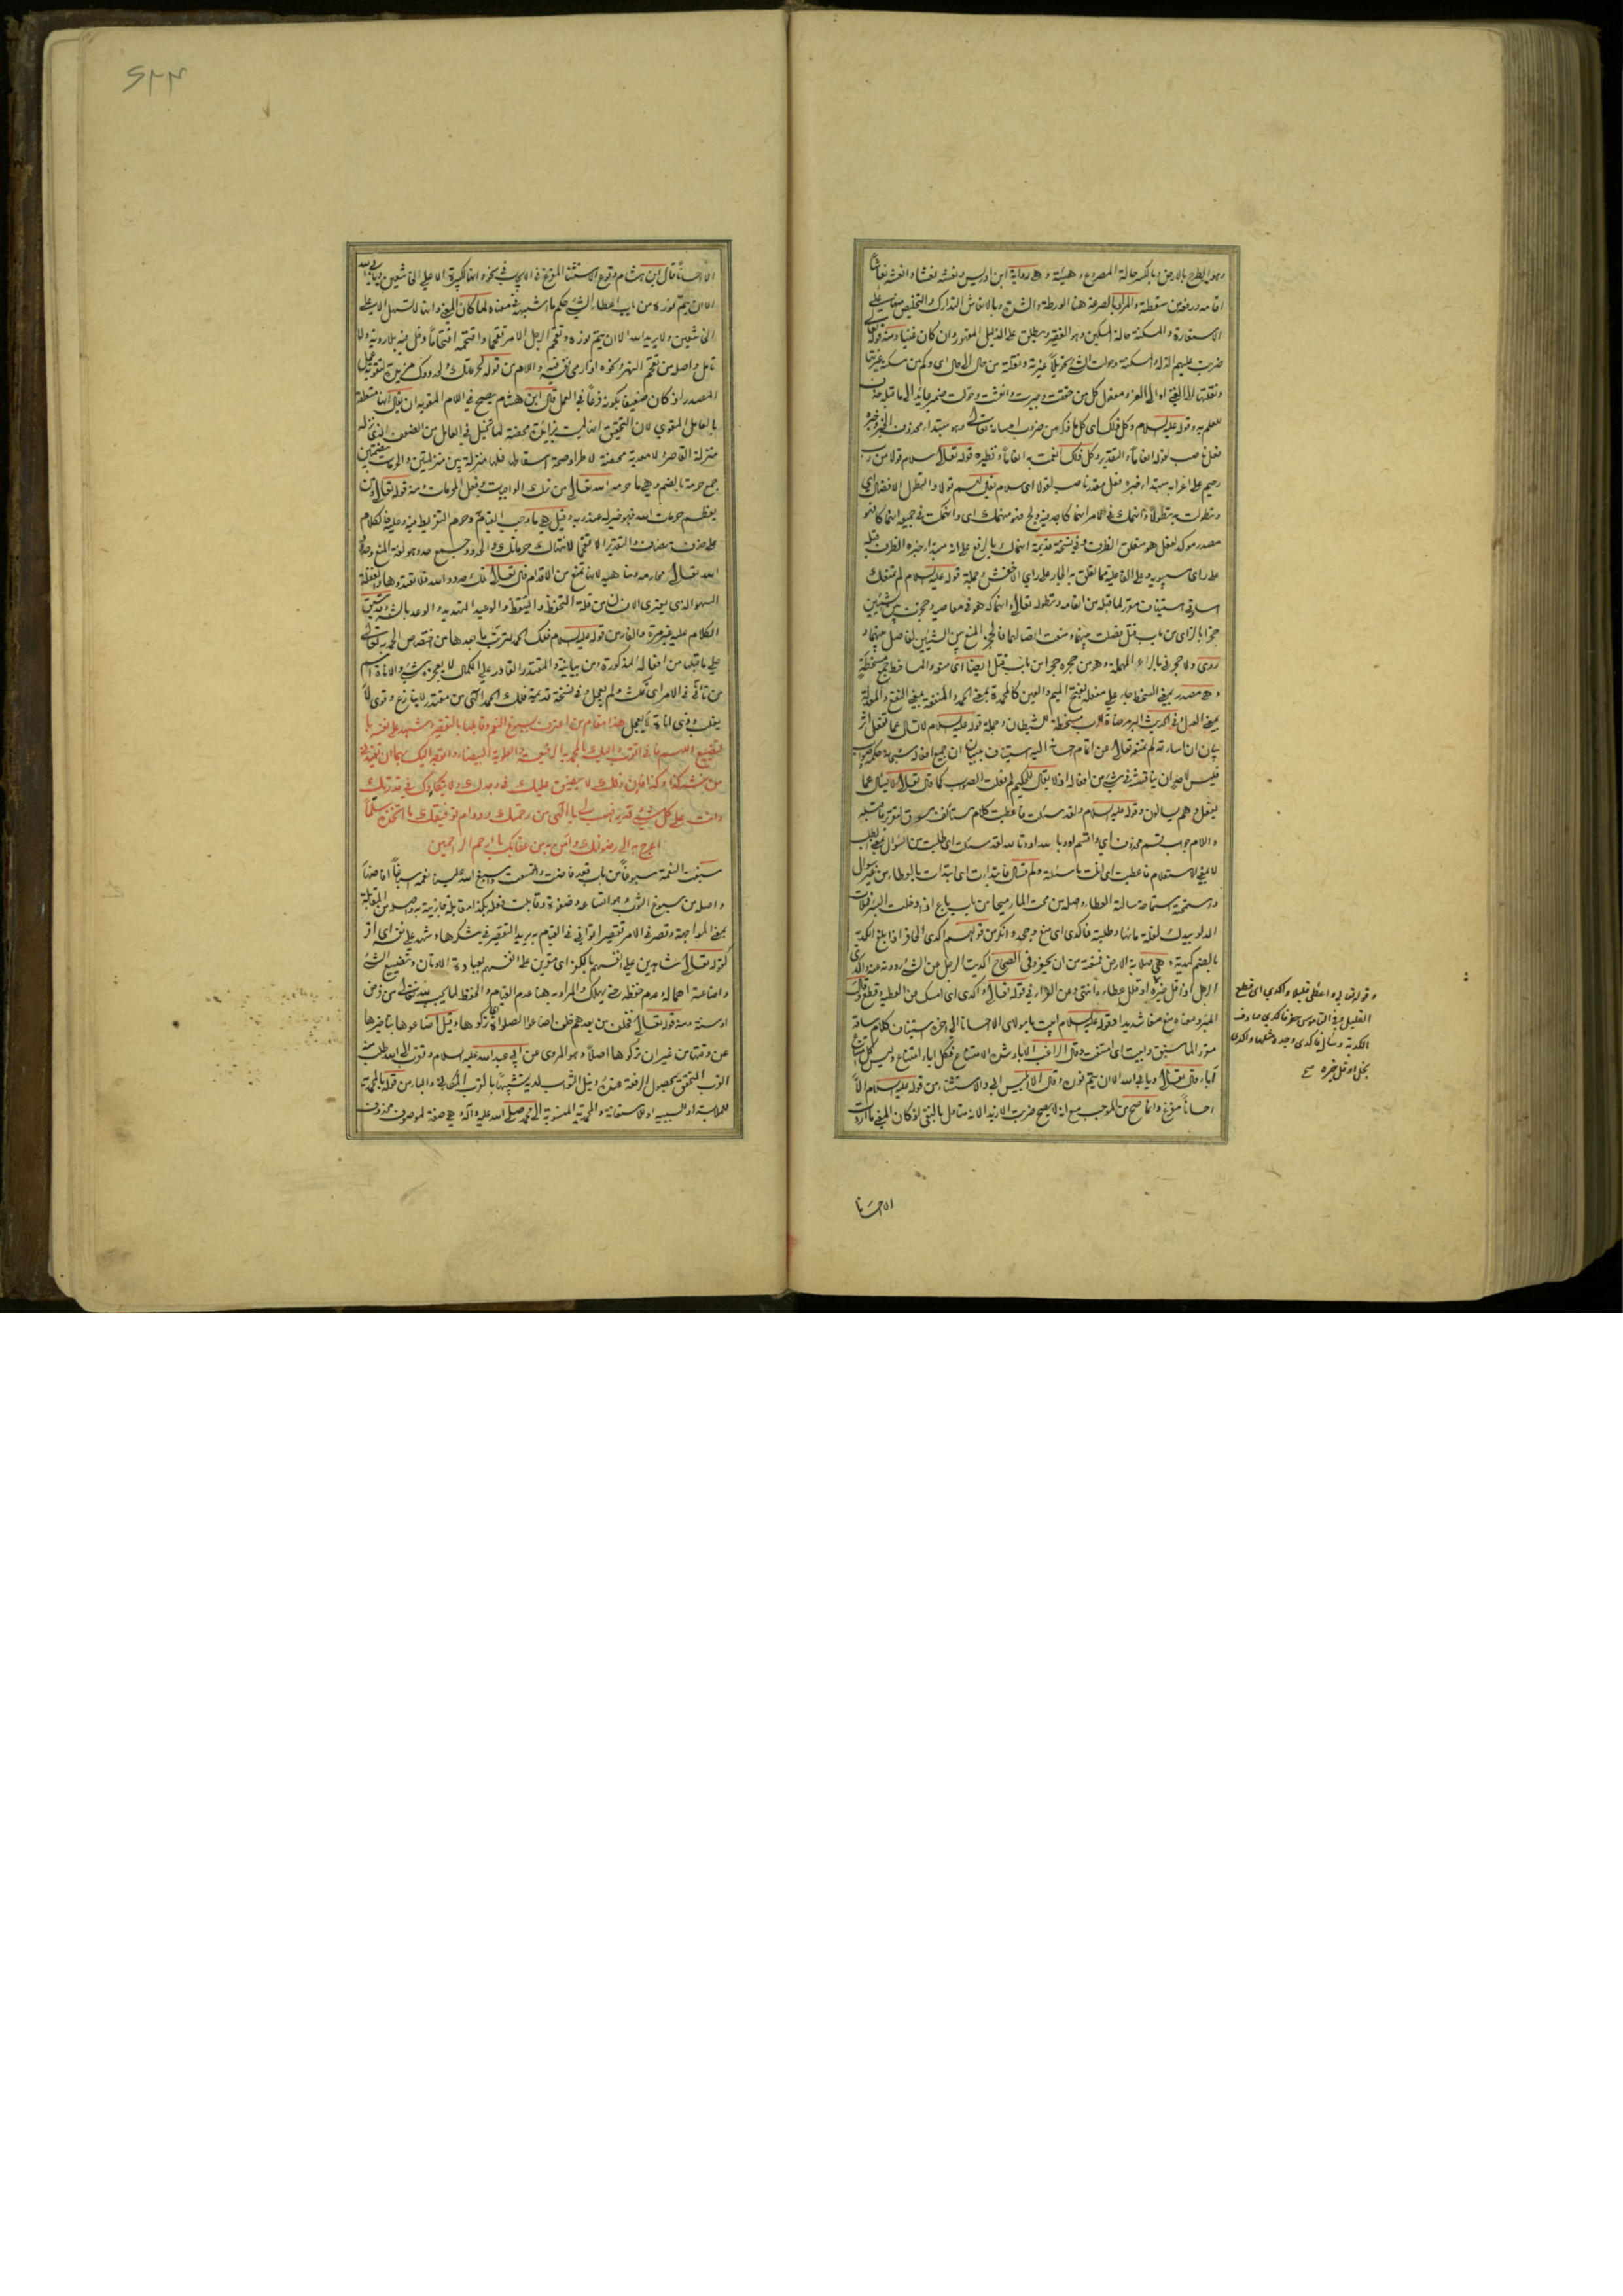 وهو الطرح بالارض وبالكسر حالة المصروع وهيئته وهي رواية ابن ادريس ونعشه نعشا وانعشه انعاشاً
اقامه ورفعه من سقطته والمراد بالصرعة هنا الورطة والشدة وبالانعاش التدارك والتخليص منها على
الاستعارة والمسكنة حالة المسكين وهو الفقير ويطلق على الذليل المقهور وان كان غنيا ومنه قوله تعالى
ضربت عليهم الذلة والمسكنة وحولت الشيء تحويلاً غيرته ونقلته من حال الى حال اى وكم من مسكنة غيرتها
ونقلتها الى الغنى او الى العز ومفعول كل من حققت وجبرت وانعشت وحولت ضمير عائد الى ما قبله حذف
للعلم به وقوله عليه السلام وكل ذلك اى كل ما ذكر من ضروب احسانه تعالى وهو مبتداء محذوف الخبر وخبره
فعل ناصب لقوله انعاماً والتقدير وكل ذلك انعمت به انعاماً ونظيره قوله تعالى سلام قولا من رب
رحيم على اعرابه مبتداء خبره فعل مقدر ناصب لقولا اى سلام يقال لهم قولا والتطول الافضال اى
وتطولت به تطولاً وانهمك في الامر انهماكا جد فيه ولج فهو منهمك اى وانهمكت في جميعه انهماكا فهو
مصدر مؤكد لفعل هو متعلق الظرف وفي نسخة قديمة انهماك بالرفع على انه مبتداء خبره الظرف قبله
على راى سيبويه وعلى الفاعلية مما تعلق به الجار على راى الاخفش وجملة قوله عليه السلام لم تمنعك
اساءتي استيناف مقرر لما قبله من انعامه وتطوله تعالى وانهماكه هو في معاصيه وحجزت بين شيئين
حجزا بالزاى من باب قتل فصلت بينهما ومنعت اتصالهما فالحجز المنع بين الشيئين لفاصل بينهما و
روى ولا حجرني بالراء المهملة وهو من حجره حجرا من باب قتل ايضا اى منعه والمساخط جمع مسخطة
وهي مصدر بمعنى السخط جاء على مفعلة بفتح الميم والعين كالمحمدة بمعنى الحمد والمنفعة بمعنى النفع
بيان ان اساءته لم تمنعه تعالى عن اتمام احسانه اليه
فليس لاحد ان يناقشه في شيء من افعاله اذ لا يقال للحكيم لم فعلت الصواب كما قال تعالى لا يسأل عما
يفعل وهم يسألون وقوله عليه السلام ولقد سئلت فاعطيت كلام مستأنف
واللام جواب قسم محذوف اى واقسم او وبالله او وتالله لقد سئلت اى طلبت من السؤال بمعنى الطلب
لا بمعنى الاستعلام فاعطيت اى انلت ما سئلته ولم تسأل فابتدات اى ابتدات بالعطاء من غير سؤال
واستمحته استماحة سالته العطاء واصله من محت الماء ميحا من باب باع اذا دخلت البئر فملات
الدلو بيدك لقلة مائها وطلبته فاكدى اى منع وجحد وانكر من قولهم اكدى الحافر اذا بلغ الكدية
بالضم كمدية وهي صلابة الارض فمنعته من ان يحفر وفي الصحاح اكديت الرجل عن الشيء رددته عنه واكدى
الرجل اذا قل خيره او قلل عطاءه انتهى وعن الفراء في قوله تعالى واكدى اى امسك من العطية وقطع
موقر لما سبق وابيت اى امتنعت وقال الراغب الاباء شدة الامتناع فكل اباء امتناع وليس كل امتناع
اباء قال تعالى ويابى الله الا ان يتم نوره وقال الا ابليس ابى والاستثناء من قوله عليه السلام الا
احساناً مفرغ وانما صح من الموجب مع انه لا يصح ضربت الا زيدا لانه متأمل بالنفي اذ كان المعنى ما اردت
وقوله تعالى واعطى قليلا واكدى اى قطع
القليل وفي القاموس حفر فاكدى صادف
الكدية وسأل فاكدى وجده مثلها واكدى
بخل او قل خيره
الا احسانا
الا احساناً قال ابن هشام وقوع الاستثناء المفرغ في الايجاب في نحو وانها لكبيرة الا على الخاشعين ويابى الله
الا ان يتم نوره من باب اعطاء الشيء حكم ما اشبهه في معناه لما كان المعنى وانها لا تسهل الا على
الخاشعين ولا يريد الله الا ان يتم نوره وتقحم الرجل الامر تقحما واقتحمه اقتحاماً دخل فيه بلا روية ولا
تامل واصله من تقحم النهر ونحوه اذا رمى نفسه فيه واللام من قوله لحرماتك ولحدودك مزيدة لتقوية عمل
المصدر اذ كان ضعيفا بكونه فرعاً في العمل قال ابن هشام يصح في اللام المقوية ان يقال انها متعلقة
بالعامل المقوى لان التحقيق انها ليست بزائدة محضة لما تخيل في العامل من الضعف الذي نزله
منزلة القاصر ولا معدية محضة لاطراد صحة اسقاطها فلها منزلة بين منزلتين والحرمات بضمتين
جمع حرمة بالضم وهي ما حرمه الله تعالى من ترك الواجبات وفعل المحرمات ومنه قوله تعالى ومن
يعظم حرمات الله فهو خير له عند ربه وقيل هي ما وجب القيام به وحرم التفريط فيه وعليه فالكلام
على حذف مضاف والتقدير الا تقحما لانتهاك حرماتك والحدود جمع حد وهو لغة المنع وحدود
الله تعالى محارمه ومناهيه لانه تمنع من الاقدام قال تعالى تلك حدود الله فلا تعتدوها والغفلة
السهو الذي يعتري الانسان من قلة التحفظ والتيقظ والوعيد التهديد والوعد بالشر وقد سبق
الكلام عليه غير مرة والفاء من قوله عليه السلام فلك الحمد لترتب ما بعدها من اختصاص الحمد به تعالى
على ما قبلها من افعاله المذكورة ومن بيانية والمقتدر القادر على الكمال لا يعجزه شيء والاناة اسم
من تأنى في الامر اى تمكث ولم يعجل وفي نسخة قديمة فلك الحمد الهي من مقتدر لا ينازع وقوى لا
يغلب وذي اناة لا يعجل هذا مقام من اعترف بسبوغ النعم وقابلها بالتقصير وشهد على نفسه با
لتضييع اللهم فاني اتقرب اليك بالمحمدية الرفيعة والعلوية البيضاء واتوجه اليك بهما ان تعيذني
من شر كذا وكذا فان ذلك لا يضيق عليك في وجدك ولا يتكأدك في قدرتك
وانت على كل شيء قدير فهب لي يا الهي من رحمتك ودوام توفيقك ما اتخذه سلماً
اعرج به الى رضوانك وآمن به من عقابك يا ارحم الراحمين
سبغت النعمة سبوغاً من باب قعد فاضت واتسعت واسبغ الله علينا نعمه اسباغاً افاضها
واصله من سبوغ الثوب وهو اتساعه وضفوه وقابلت فعله بكذا مقابلة جازيته به واصله من المقابلة
بمعنى المواجهة وقصر في الامر تقصيرا توانى في القيام به يريد التقصير في شكرها وشهد على نفسه اى اقر
كقوله تعالى شاهدين على انفسهم بالكفر اى مقرين على انفسهم بعبادة الاوثان وتضييع الشيء
واضاعته اهماله وعدم حفظه حتى يهلك والمراد به هنا عدم القيام والحفظ لما يجب لله تعالى من فرض
او سنة ومنه قوله تعالى فخلف من بعدهم خلف اضاعوا الصلاة اى تركوها وقيل اضاعوها بتاخيرها
عن وقتها من غير ان تركوها اصلاً وهو المروى عن ابي عبد الله عليه السلام وتقرب الى الله طلب منه
القرب المتحقق بحصول الرفعة عنده ونيل الثواب لديه تشبيهاً بالقرب المكاني والباء من قوله بالمحمدية
للملابسة او للسببية او للاستعانة والمحمدية المنسوبة الى محمد صلى الله عليه وآله وهي صفة لموصوف محذوف